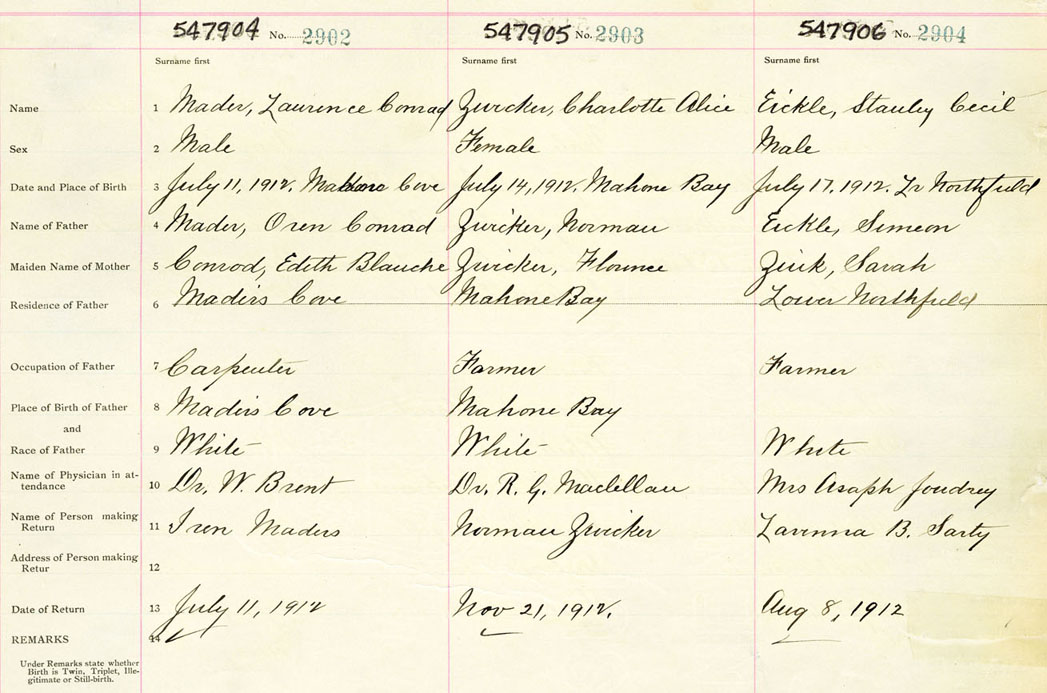 547904 No. 2902 547905 No. 2903 547906 No. 2904
Surname first Surname first Surname first
Name 1 Mader, Laurence Conrad Zwicker, Charlotte Alice Eickle, Stanley Cecil
Sex 2 Male Female Male
Date and Place of Birth 3 July 11, 1912. Cove July 14, 1912. Mahone Bay July 17. 1912. Lr Northfield
Name of Father 4 Mader, Oren Conrad Zwicker, Norman Eickle, Simeon
Maiden Name of Mother 5 Conrod, Edith Blanche Zwicker, Florence Zink, Sarah
Residence of Father 6 Maders Cove Mahone Bay Lower Northfield
Occupation of Father 7 Carpenter Farmer Farmer
Place of Birth of Father 8 Maders Cove Mahone Bay
and
Race of Father 9 White White White
Name of Physician in at-
tendance 10 Dr. W. Brent Dr. R. G. Maclellan Mrs Asaph Joudrey
Name of Person making
Return 11 Iren Maders Norman Zwicker Lavinna B. Sarty
Address of Person making
Retur 12
Date of Return 13 July 11, 1912 Nov 21, 1912. Aug 8, 1912
REMARKS 14
Under Remarks state whether
Birth is Twin, Triplet, Ille-
gitimate or Still-birth.